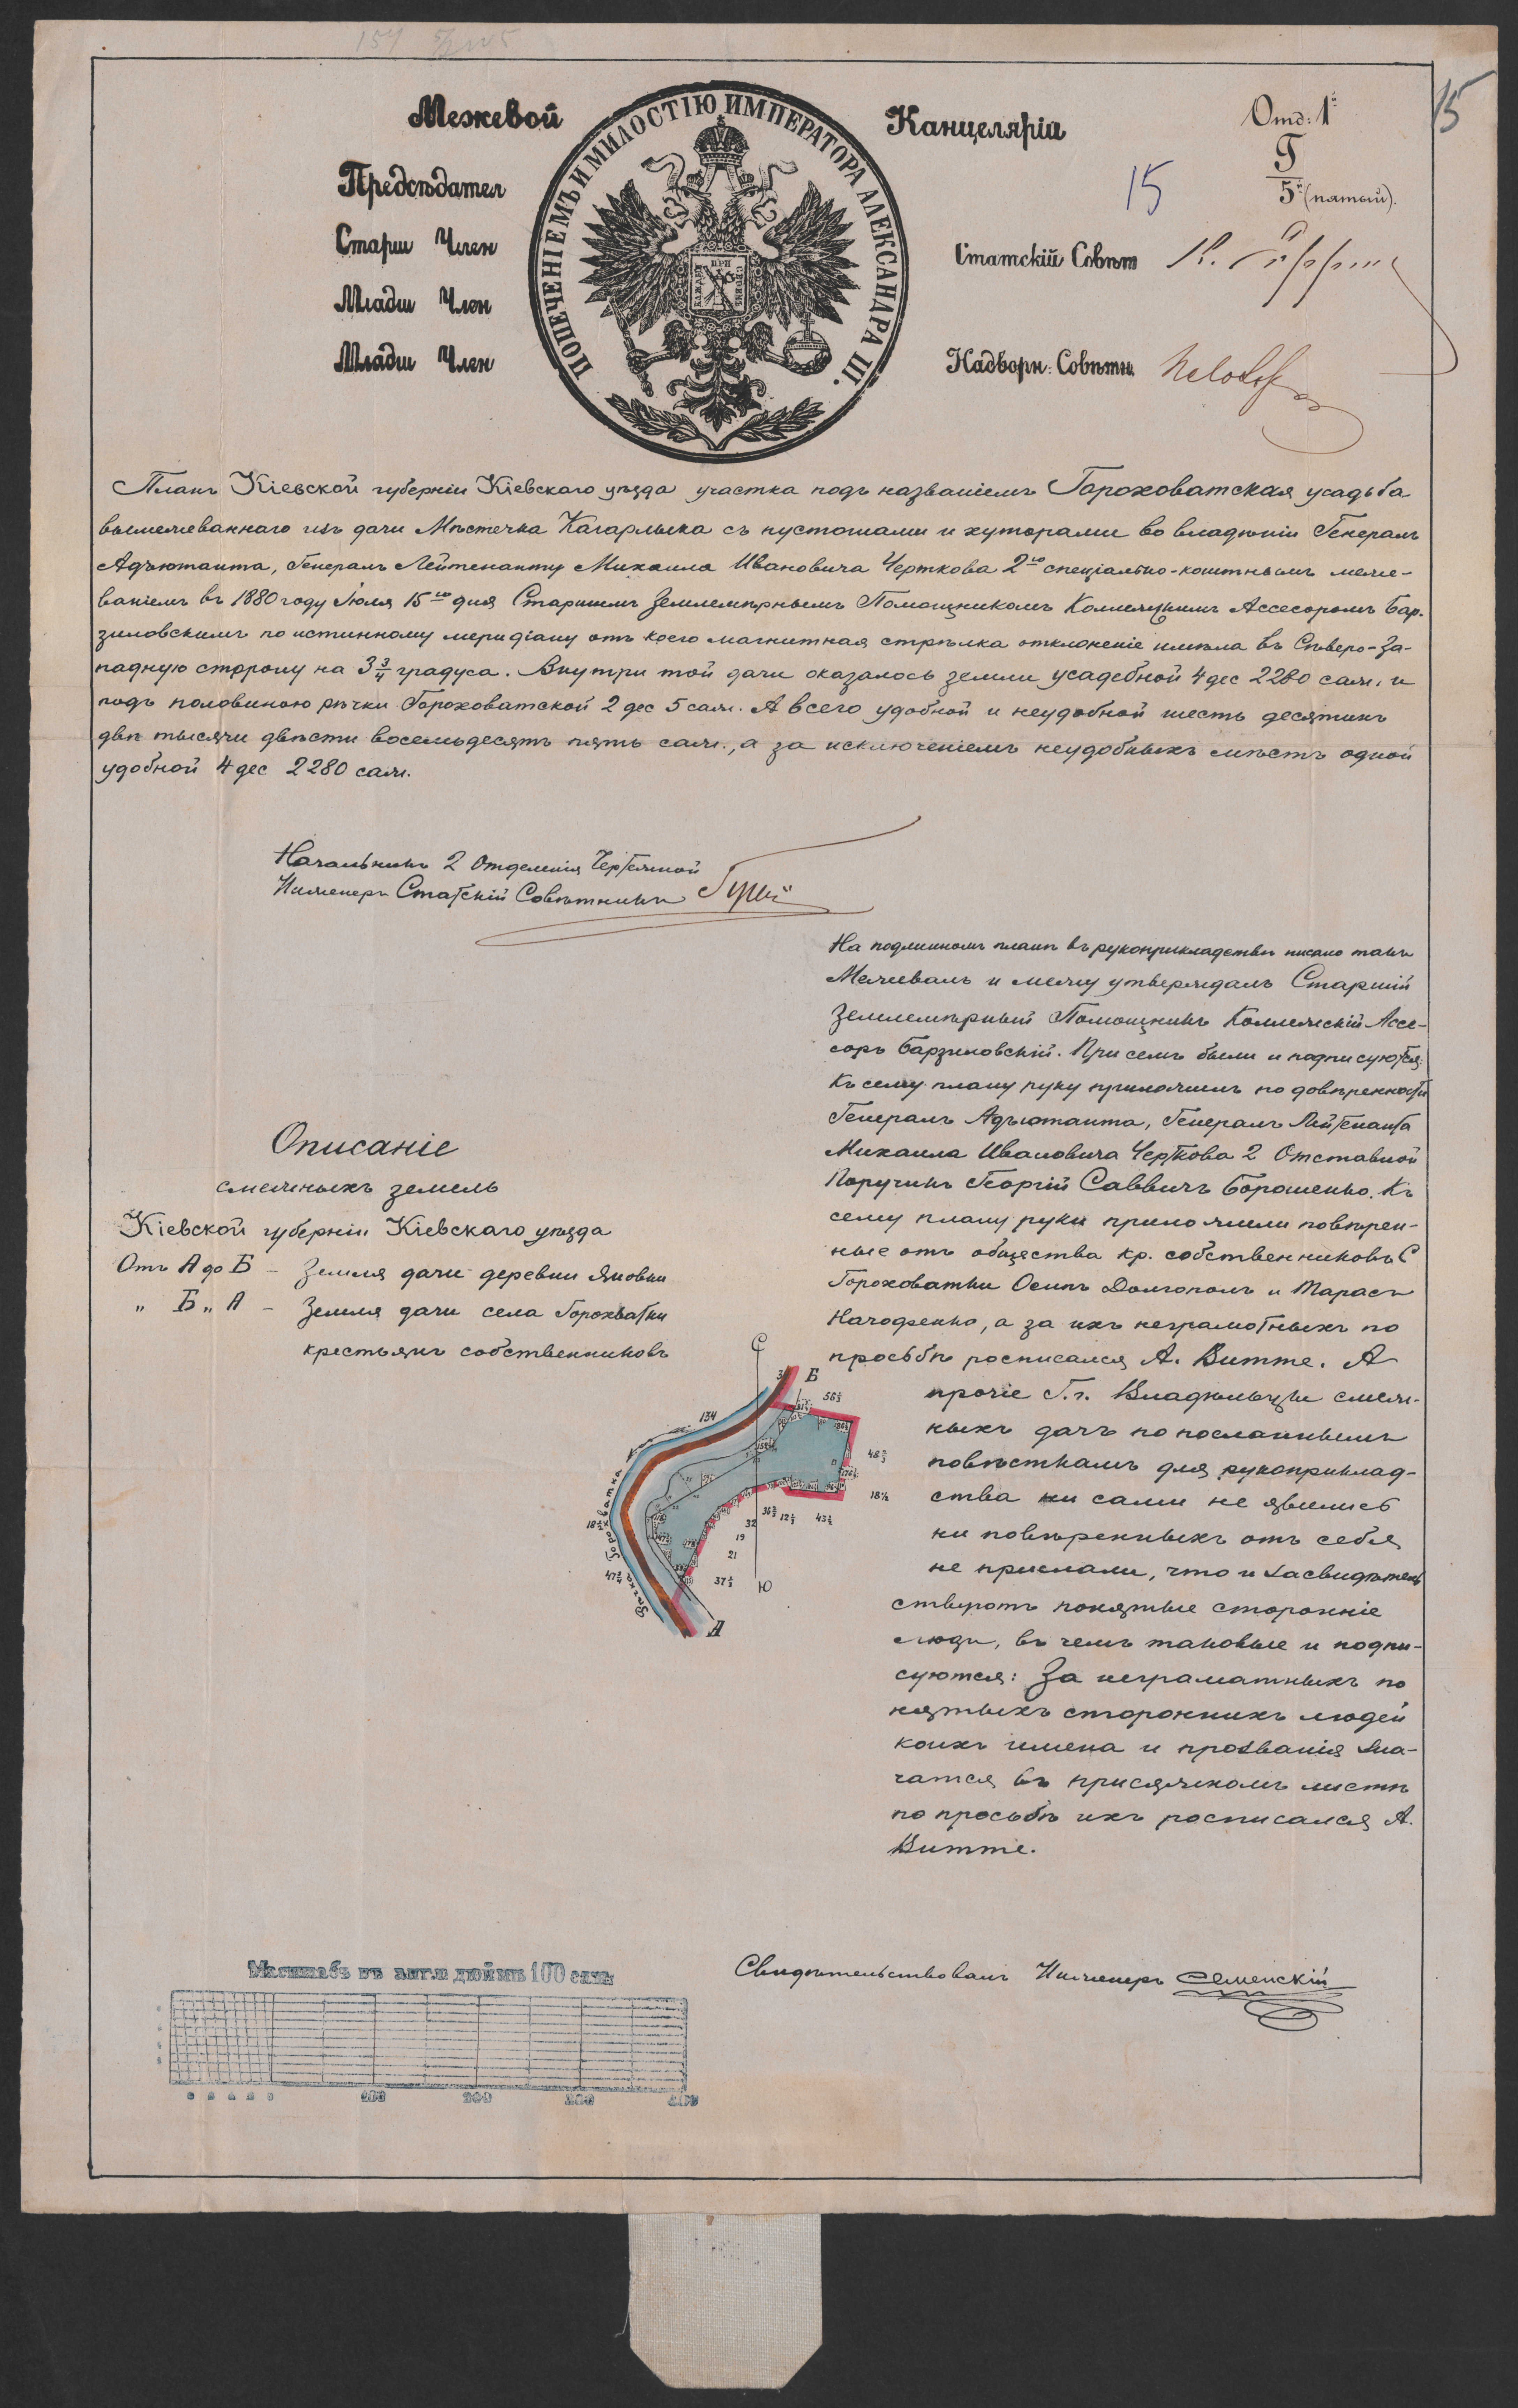 Межевой Канцеляріи
Отд: 1е
ПОПЕЧЕНІЕМЪ И МИЛОСТІЮ ИМПЕРАТОРА АЛЕКСАНДРА III.
15
Г
5й (пятый).
15
Предсѣдател
Старш Член
Младш Член
Младш Член
Статскій Совѣт
Надворн: Совѣтн.
Планъ Кіевской губерніи Кіевскаго уѣзда участка подъ названіемъ Гороховатская усадьба
вымежеваннаго изъ дачи Мѣстечка Кагарлыка съ пустошами и хуторами во владѣніи Генералъ
Адъютанта, Генералъ Лейтенанту Михаила Ивановича Черткова 2го спеціально-коштнымъ меже-
ваніемъ въ 1880 году Іюля 15го дня Старшимъ Землемѣрнымъ Помощникомъ Коллежскимъ Ассесоромъ Бар-
зиловскимъ по истинному меридіану отъ коего магнитная стрѣлка отклоненіе имѣла въ Сѣверо-За-
падную сторону на 3 3/4 градуса. Внутри той дачи оказалось земли усадебной 4 дес 2280 саж. и
подъ половиною рѣчки Гороховатской 2 дес 5 саж. А всего удобной и неудобной шесть десятинъ
двѣ тысячи двѣсти восемьдесятъ пять саж., а за исключеніемъ неудобныхъ мѣстъ одной
удобной 4 дес 2280 саж.
Начальникъ 2 Отделенія Чертежной
Инженеръ Статскій Совѣтникъ
На подлинномъ планѣ въ рукоприкладствѣ писано такъ
Межевалъ и межу утверждалъ Старшій
Землемѣрный Помощникъ Коллежскій Ассе-
соръ Барзиловскій. При семъ были и подписуются:
Къ сему плану руку приложилъ по довѣренности
Генералъ Адъютанта, Генералъ Лейтенанта
Михаила Ивановича Черткова 2 Отставной
Поручикъ Георгій Саввичъ Борошенко. Къ
сему плану руки приложили повѣрен-
ные отъ общества кр. собственниковъ С
Гороховатки Осипъ Долгополъ и Тарасъ
Начофенко, а за ихъ неграмотныхъ по
просьбѣ росписался А. Витте. А
прочіе Г.г. Владѣльцы смеж-
ныхъ дачъ по посланнымъ
повѣсткамъ для рукоприклад-
ства ни сами не явились
ни повѣренныхъ отъ себя
не прислали, что и засвидѣтель
ствуютъ понятые сторонніе
люди, въ чемъ таковые и подпи-
суются: За неграматныхъ по
нятыхъ стороннихъ людей
коихъ имена и прозванія зна-
чатся въ присяжномъ листѣ
по просьбѣ ихъ росписался А.
Витте.
Описаніе
смежныхъ земель
Кіевской губерніи Кіевскаго уѣзда
Отъ А до Б – Земля дачи деревни Яновки
" Б " А – Земля дачи села Горохватки
крестьянъ собственниковъ
С
Б
134
Рѣчка Гороховатка
32
19
21
Ю
А
Масштабъ въ англ дюймѣ 100 саж
100 200 300 400
Свидѣтельствовалъ Инженеръ Семенскій